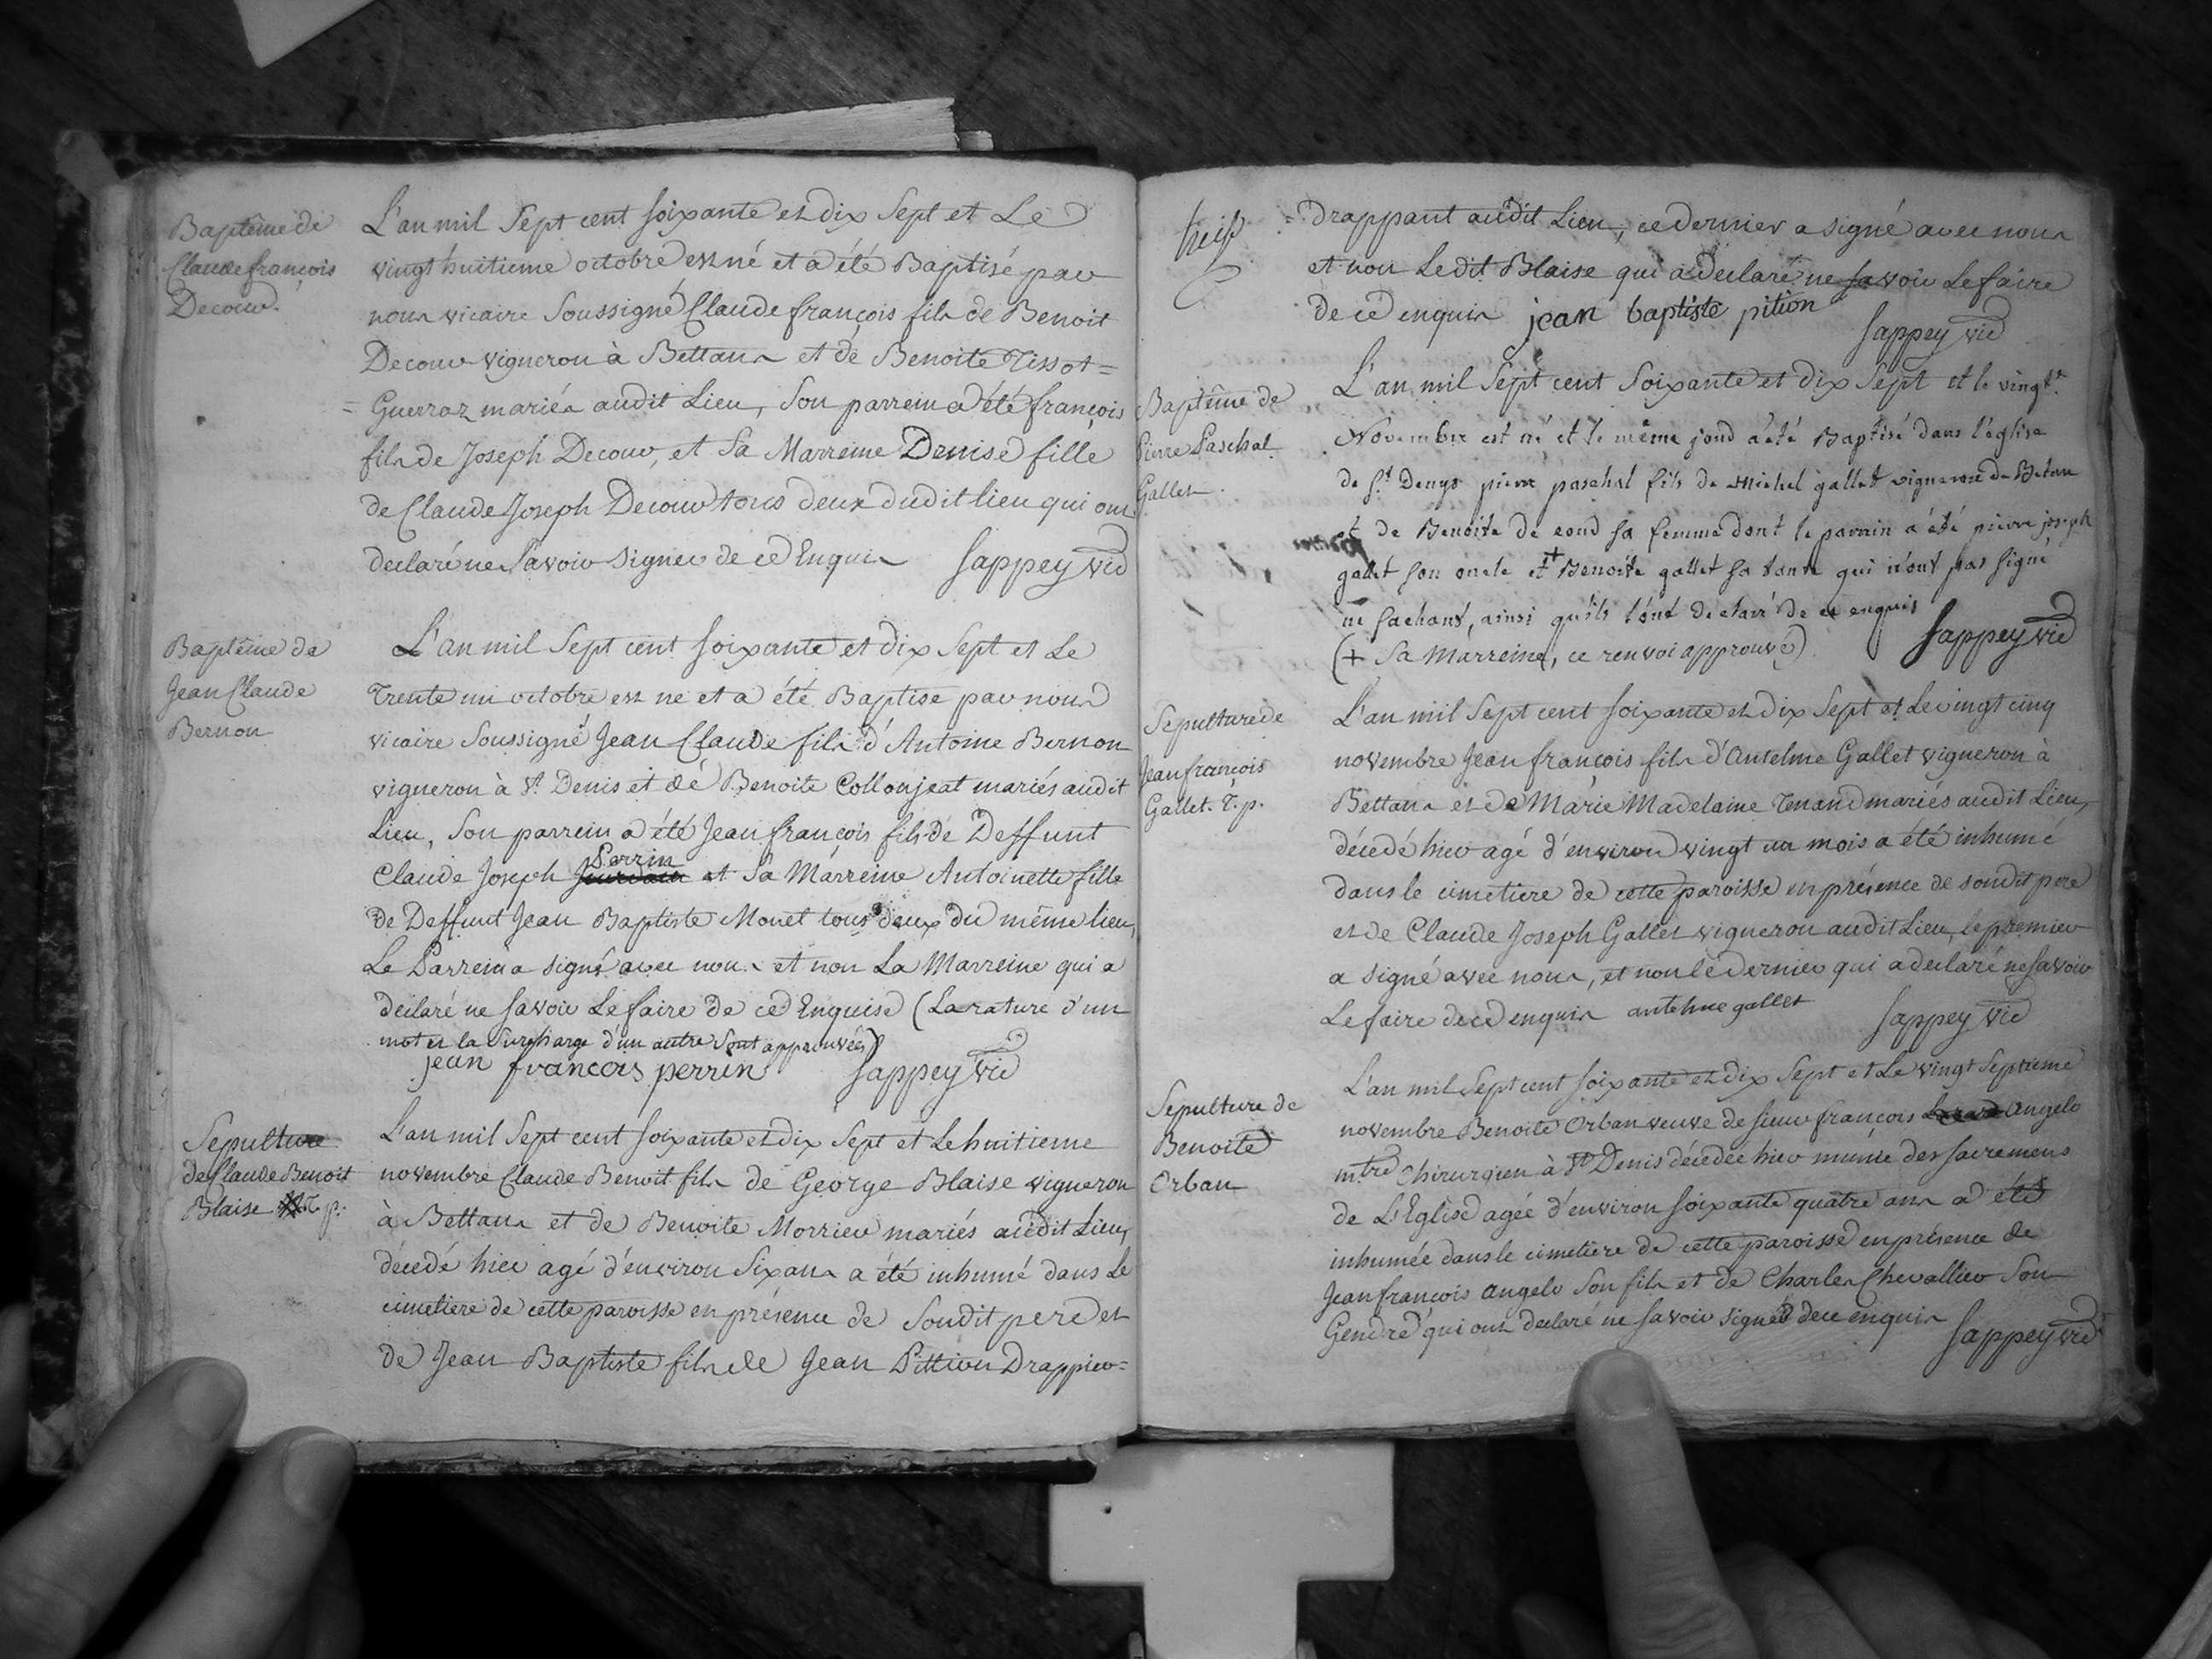 Baptême de
Claude françois
Decour.
L'an mil Sept cent soixante et dix Sept et Le
vingt huitieme octobre est né et a été Baptisé par
nous vicaire Soussigné Claude françois fils de Benoit
Decour vigneron à Bettans et de Benoite Tissot =
= Guerraz mariés audit Lieu, Son parrein a été françois
fils de Joseph Decour, et Sa Marreine Denise fille
de Claude Joseph Decour tous deux dudit lieu qui ont
declaré ne Savoir signer de ce Enquis Sappey vic
Baptême de
Jean Claude
Bernon
L'an mil Sept cent soixante et dix Sept et Le
Trente un octobre est né et a été Baptisé par nous
vicaire Soussigné Jean Claude fils d'Antoine Bernon
vigneron à St. Denis et de Benoite Collonjeat mariés audit
Lieu, Son parrein a été Jean françois fils de Deffunt
Perrin
Claude Joseph et Sa Marreine Antoinette fille
de Deffunt Jean Baptiste Monet tous deux du même lieu,
Le Parrein a signé avec nous et non La Marreine qui a
declaré ne savoir Le faire de ce Enquise (La rature d'un
mot et la Surcharge d'un autre Sont approuvées)
jean francois perrin Sappey vic
Sepulture
de Claude Benoit
Blaise T. p:
L'an mil Sept cent soixante et dix Sept et Le huitieme
novembre Claude Benoit fils de George Blaise vigneron
à Bettans et de Benoite Morrieu mariés audit Lieu,
décedé hier agé d'environ Six ans a été inhumé dans Le
cimetiere de cette paroisse en présence de Soudit pere et
de Jean Baptiste fils de Jean Pittion Drappier =
= Drappant audit Lieu, ce dernier a signé avec nous
et non Le dit Blaise qui a declaré ne savoir Le faire
de ce enquis jean baptiste pition
Sappey vic
Baptême de
Pierre Paschal
Gallet.
L'an mil Sept cent Soixante et dix Sept et le vingt
Novembre est né et le même jour a été Baptisé dans l'église
de St. Denys pierre paschal fils de michel gallet vigneron de Betan
et de Benoite de cour sa femme dont le parrain a été pierre joseph
gallet son oncle et + Benoite gallet sa tante qui n'ont pas signé
ne sachant, ainsi qu'ils l'ont declaré de ce enquis
(+ Sa Marreine, ce renvoi approuvé) Sappey vic
Sepulture de
Jean françois
Gallet. T. p.
L'an mil Sept cent soixante et dix Sept et Le vingt cinq
novembre Jean françois fils d'Antelme Gallet vigneron à
Bettans et de Marie Madelaine Tenand mariés audit Lieu,
décedé hier agé d'environ vingt un mois a été inhumé
dans le cimetiere de cette paroisse en présence de soudit pere
et de Claude Joseph Gallet vigneron audit Lieu, le premier
a signé avec nous, et non le dernier qui a declaré ne savoir
Le faire de ce enquis antelme gallet Sappey vic
Sepulture de
Benoite
Orban
L'an mil Sept cent soixante et dix Sept et Le vingt Septieme
novembre Benoite Orban veuve de sieur françois Angelo
mtre Chirurgien à St. Denis décedée hier munie des sacremens
de L'Eglise agée d'environ soixante quatre ans a été
inhumée dans le cimetiere de cette paroisse en présence de
Jean francois Angelo Son fils et de Charles Chevallier Son
Gendre qui ont declaré ne savoir signer de ce enquis Sappey vic